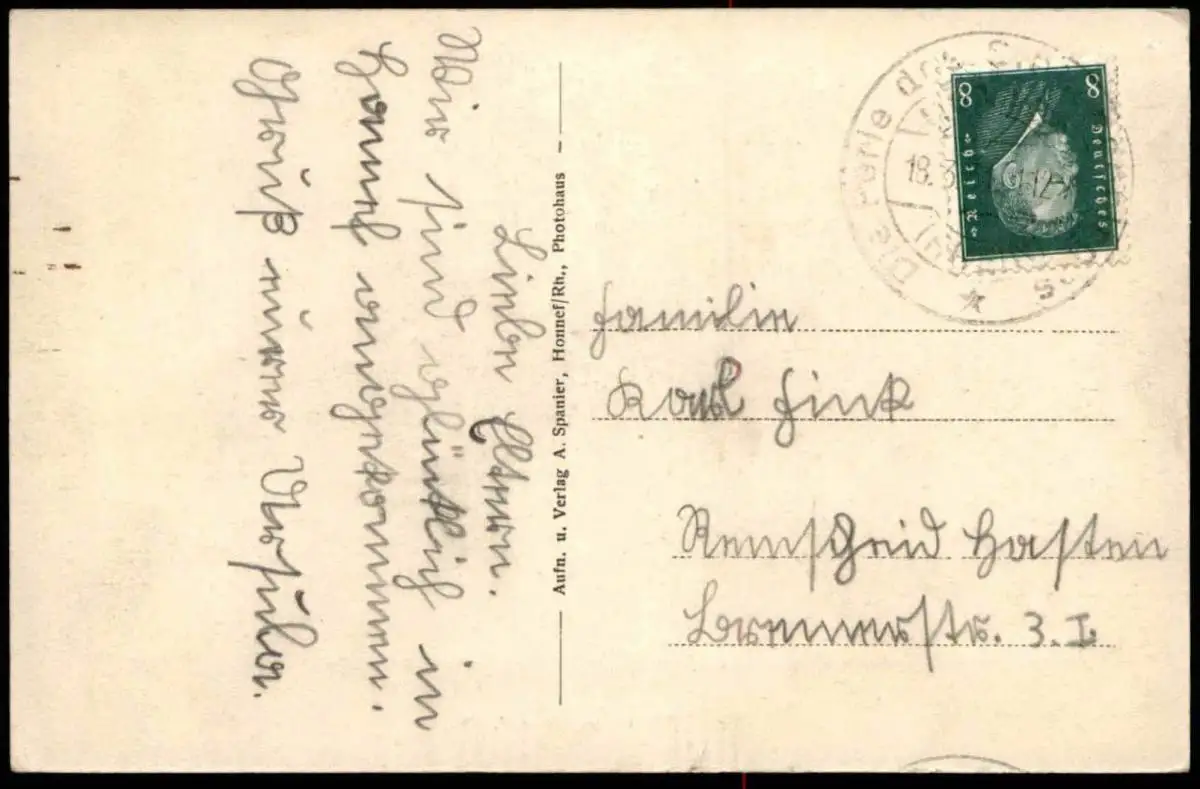 Lieben Eltern.
Wir sind glücklich in
Honnef angekommen.
Gruß eure Ursula.
Aufn. u. Verlag A. Spanier, Honnef/Rh., Photohaus
Die Perle des
18.3. 12
8 8
Deutsches
Reich
Familie
Karl Fink
Remscheid Hasten
Bremerstr. 3. I.